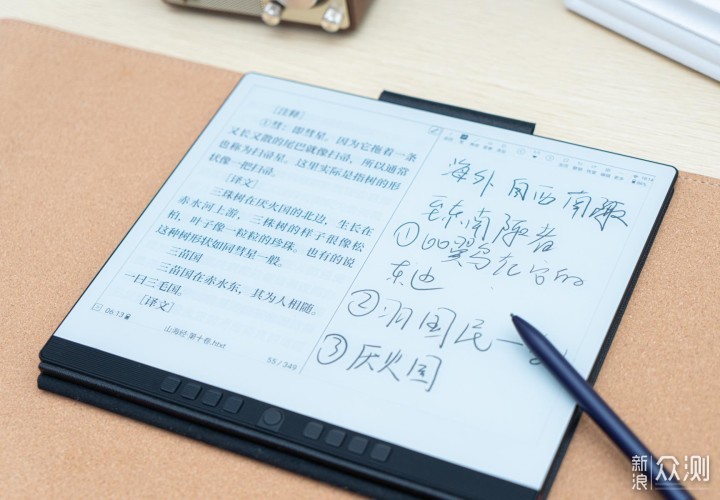 [注释]
①彗：即彗星。因为它拖着一条
又长又散的尾巴就像扫帚，所以通常
也称为扫帚星。这里实际是指树的形
状像一把扫帚。
[译文]
三珠树在厌火国的北边，生长在
赤水河上游，三株树的样子很像松
柏，叶子像一粒粒的珍珠。也有的说
这种树形状如同彗星一般。
三苗国
三苗国在赤水东，其为人相随。
一曰三毛国。
[译文]
06:13
山海经 第十卷.txt
55 / 349
海外 自西南陬
至东南陬者
①比翼鸟在
东边
②羽国民一
③厌火国
新浪众测